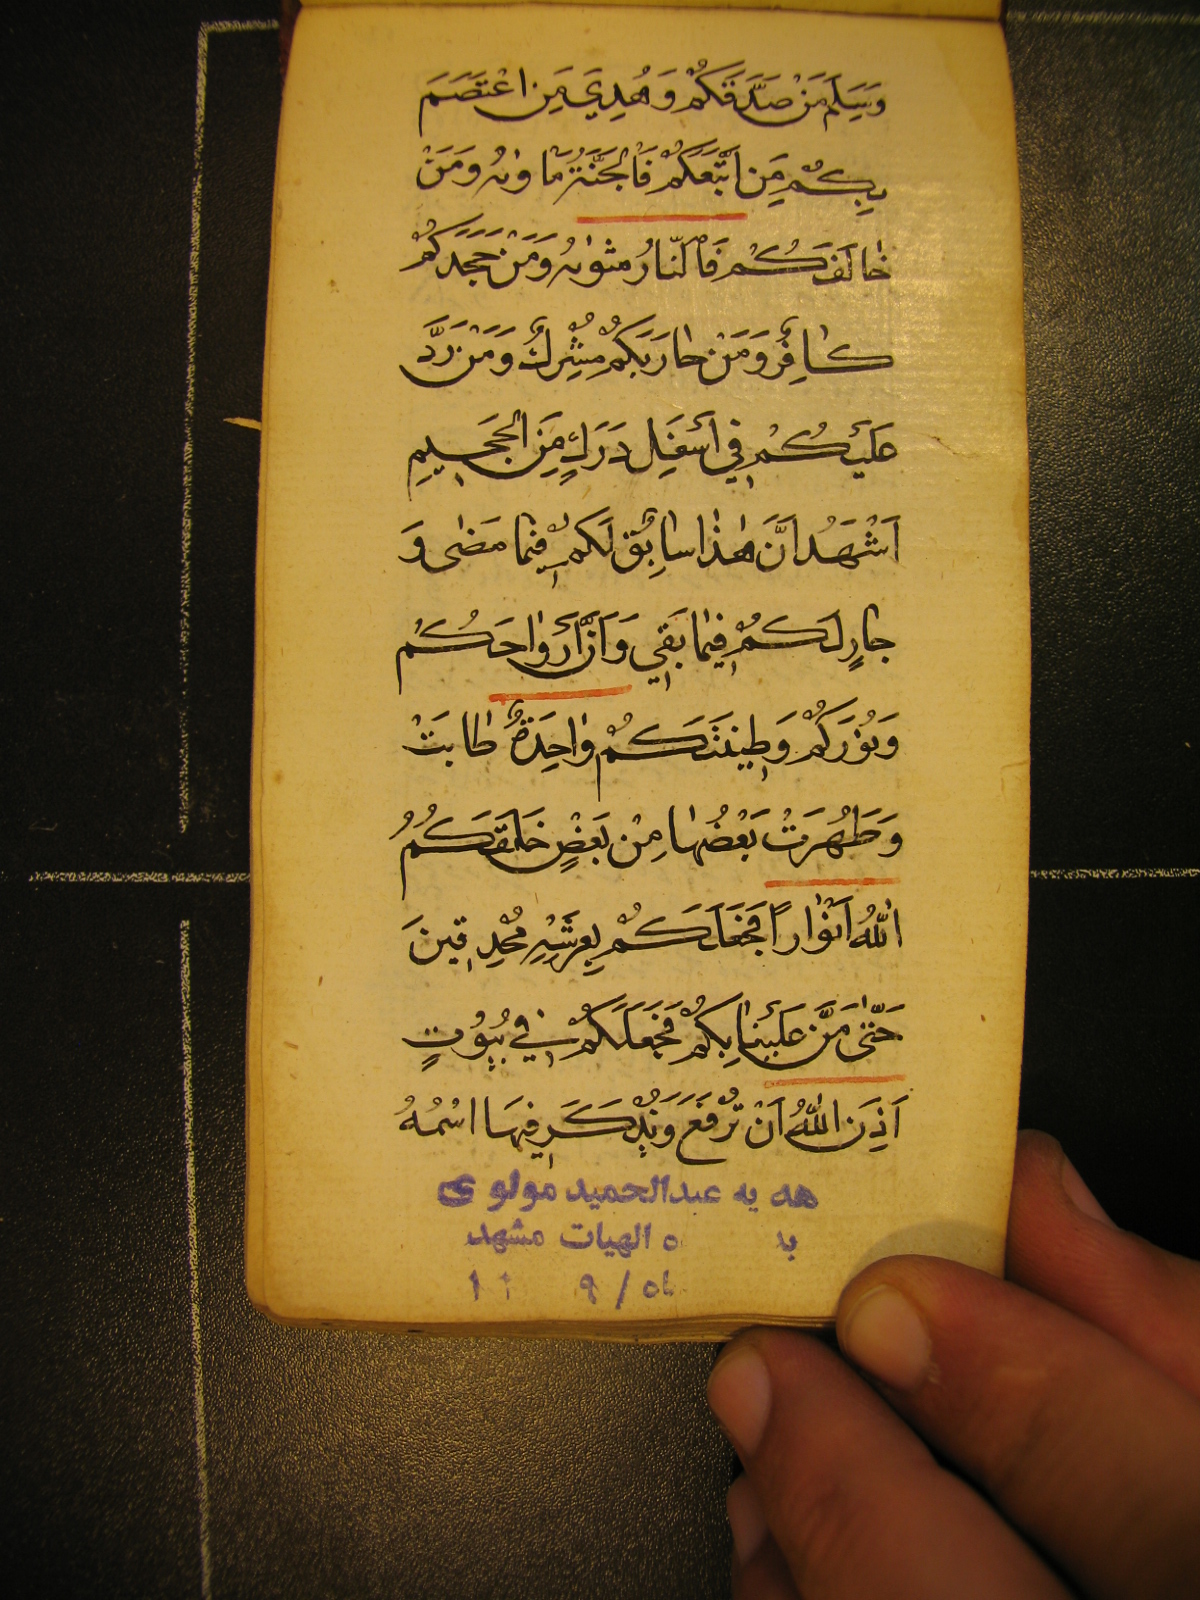 وَسَلِمَ مَنْ صَدَّقَكُمْ وَهُدِيَ مَنِ اعْتَصَمَ
بِكُمْ مَنِ اتَّبَعَكُمْ فَالْجَنَّةُ مَاوٰيهُ وَمَنْ
خٰالَفَكُمْ فَالنّٰارُ مَثْوٰيهُ وَمَنْ جَحَدَكُمْ
كٰافِرٌ وَمَنْ حٰارَبَكُمْ مُشْرِكٌ وَمَنْ رَدَّ
عَلَيْكُمْ فِي اَسْفَلِ دَرَكٍ مِنَ الْجَحِيمِ
اَشْهَدُ اَنَّ هٰذٰا سٰابِقٌ لَكُمْ فِيمٰا مَضٰى وَ
جٰارٍ لَكُمْ فِيمٰا بَقِيَ وَاَنَّ اَرْوٰاحَكُمْ
وَنُورَكُمْ وَطِينَتَكُمْ وٰاحِدَةٌ طٰابَتْ
وَطَهُرَتْ بَعْضُهٰا مِنْ بَعْضٍ خَلَقَكُمُ
اللّٰهُ اَنْوٰاراً فَجَعَلَكُمْ بِعَرْشِهِ مُحْدِقِينَ
حَتّٰى مَنَّ عَلَيْنٰا بِكُمْ فَجَعَلَكُمْ فِي بُيُوتٍ
اَذِنَ اللّٰهُ اَنْ تُرْفَعَ وَيُذْكَرَ فِيهَا اسْمُهُ
هه يه عبدالحميد مولوى
ه الهيات مشهد